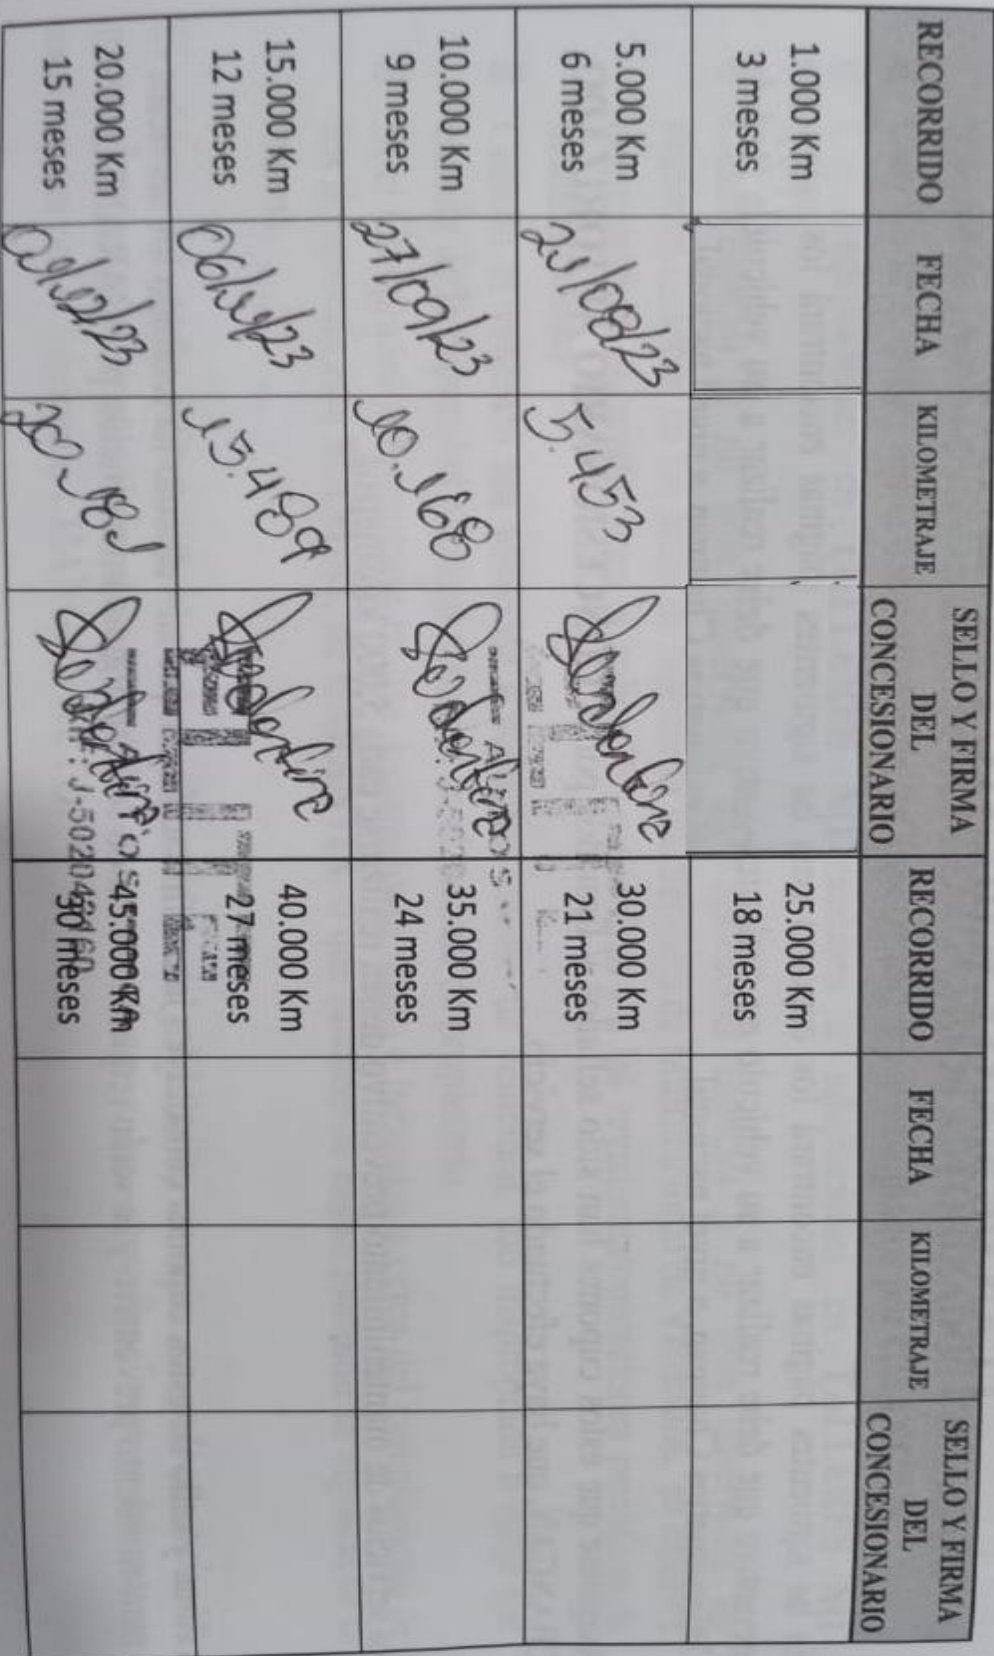 RECORRIDO FECHA KILOMETRAJE SELLO Y FIRMA DEL CONCESIONARIO RECORRIDO FECHA KILOMETRAJE SELLO Y FIRMA DEL CONCESIONARIO
1.000 Km
3 meses
25.000 Km
18 meses
5.000 Km
6 meses
23/08/23
5.453
30.000 Km
21 meses
10.000 Km
9 meses
27/09/23
10.168
35.000 Km
24 meses
15.000 Km
12 meses
06/11/23
15.489
40.000 Km
27 meses
20.000 Km
15 meses
/12/23
20.181
J-50204
45.000 Km
30 meses